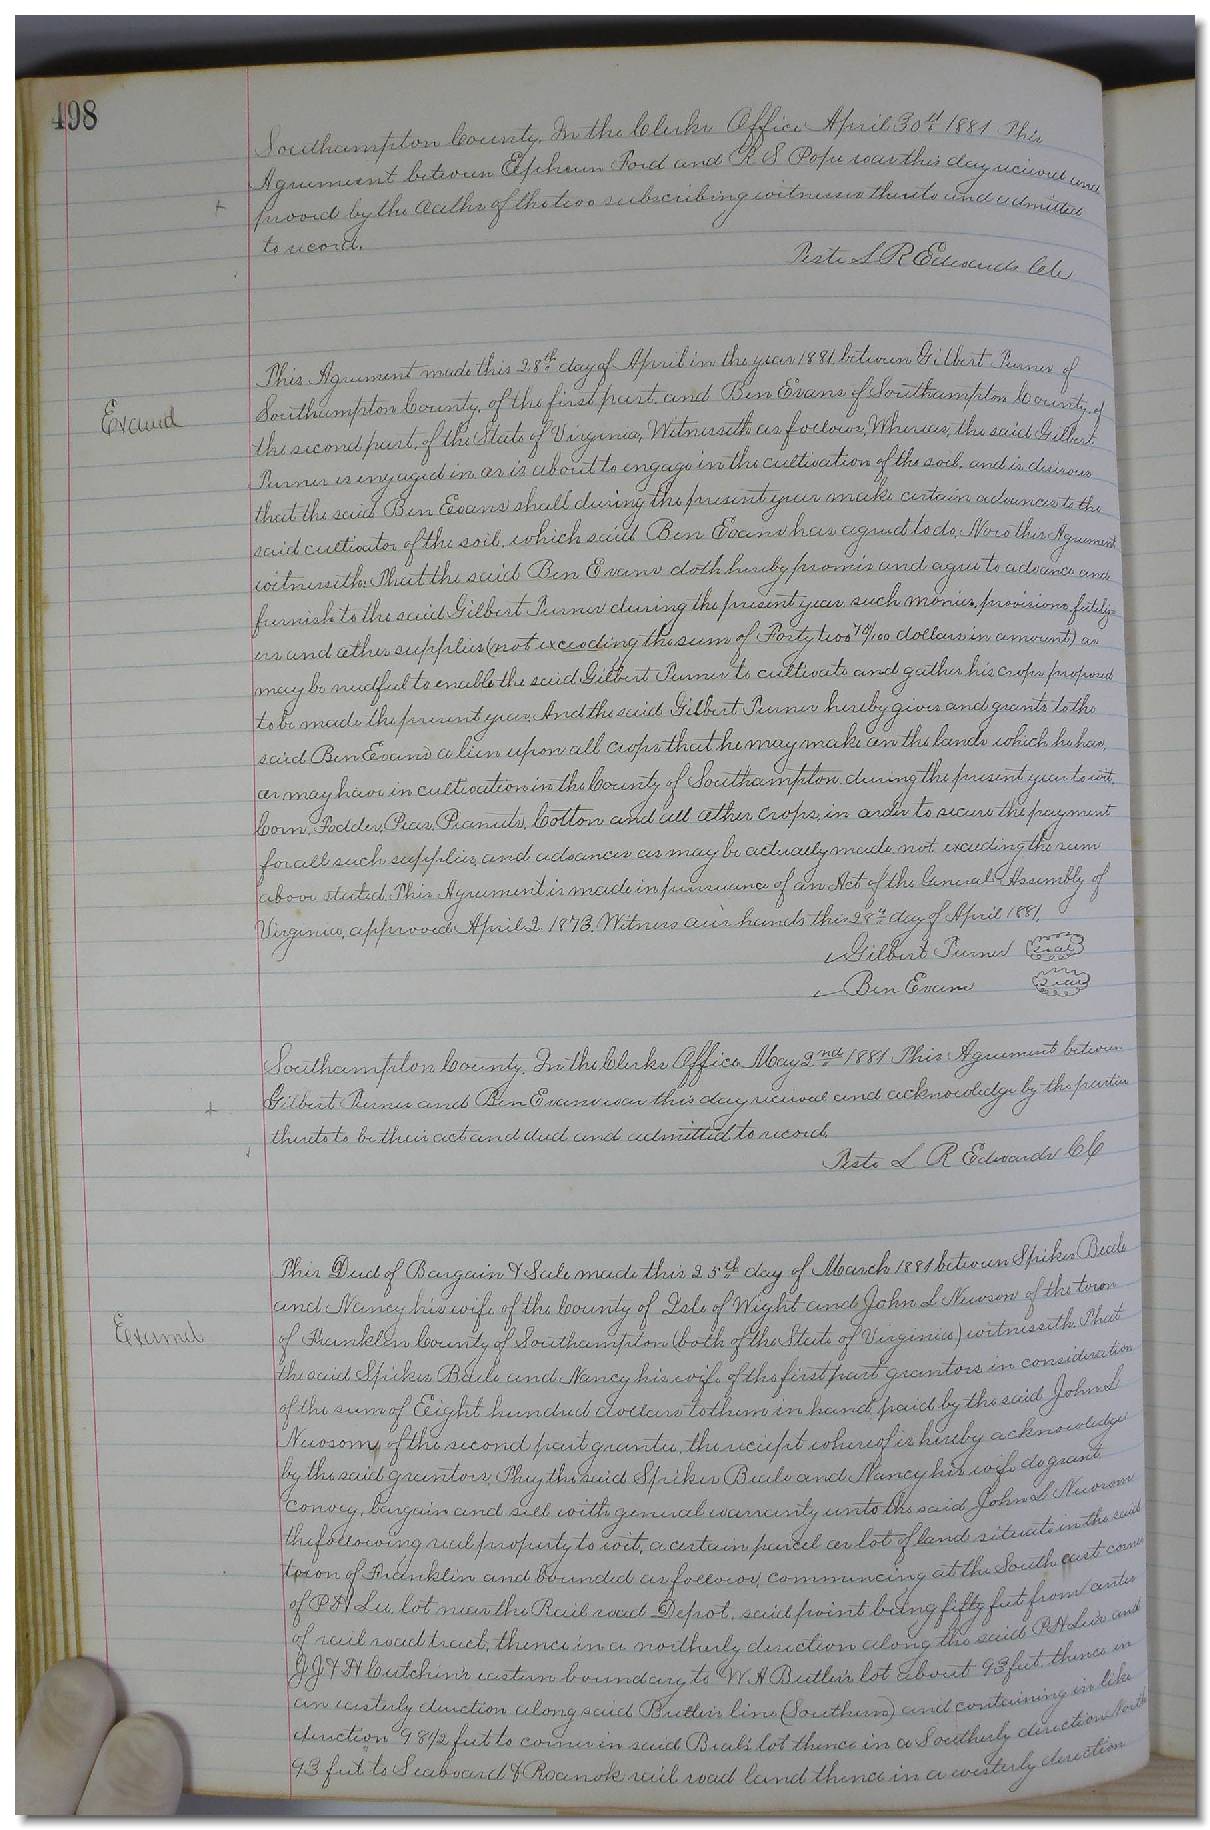 498
Southampton County, In the Clerks Office April 30th 1881 This
Agreement between Ephraim Ford and R S Pope was this day received and
proved by the oaths of the two subscribing witnesses thereto and admitted
to record.
Teste L R Edwards Clk
Examd
This Agreement made this 28th day of April in the year 1881 between Gilbert Turner of
Southampton County, of the first part, and Ben Evans of Southampton County of
the second part, of the State of Virginia, Witnesseth as follows, Whereas, the said Gilbert
Turner is engaged in or is about to engage in the cultivation of the soil, and is desirous
that the said Ben Evans shall during the present year make certain advances to the
said cultivator of the soil, which said Ben Evans has agreed to do, Now this Agreement
witnesseth: That the said Ben Evans doth hereby promis and agree to advance and
furnish to the said Gilbert Turner during the present year such monies, provisions, fertiliz-
ers and other supplies (not exceeding the sum of Forty two 70/100 dollars in amount) as
may be needful to enable the said Gilbert Turner to cultivate and gather his crops proposed
to be made the present year, And the said Gilbert Turner hereby gives and grants to the
said Ben Evans a lien upon all crops that he may make on the lands which he has,
or may have in cultivation in the County of Southampton during the present year to wit.
Corn, Fodder, Peas, Peanuts, Cotton and all other crops, in order to secure the payment
for all such supplies, and advances as may be actually made not exceeding the sum
above stated. This Agreement is made in pursuance of an Act of the General Assembly of
Virginia, approved April 2 1873. Witness our hands this 28th day of April 1881.
Gilbert Turner Seal
Ben Evans Seal
Southampton County, In the Clerks Office, May 2nd 1881 This Agreement between
Gilbert Turner and Ben Evans was this day received and acknowledge by the parties
thereto to be their act and deed and admitted to record.
Teste L R Edwards CC
Examd
This Deed of Bargain & Sale made this 25th day of March 1881 between Spikes Beale
and Nancy his wife of the County of Isle of Wight and John L Newsom of the town
of Franklin County of Southampton (both of the State of Virginia) witnesseth That
the said Spikes Beale and Nancy his wife of the first part grantors in consideration
of the sum of Eight hundred dollars to them in hand paid by the said John L
Newsom, of the second part grantee, the reciept whereof is hereby acknowledge
by the said grantors, They the said Spikes Beale and Nancy his wife do grant
convey, bargain and sell with general warranty unto the said John L Newsom
the following real property to wit, a certain parcel or lot of land situate in the said
town of Franklin and bounded as follows, commencing at the South east corner
of P H Lee, lot near the Rail road Depot, said point being fifty feet from center
of rail road tract, thence in a northerly direction along the said P H Lee's and
J J & H Cutchin's eastern boundary to W A Butler's lot about 93 feet. thence in
an easterly direction along said Butler's line (Southern) and containing in like
direction 98 1/2 feet to corner in said Beal's lot thence in a Southerly direction South
93 feet to Seaboard & Roanoke rail road land thence in a westerly direction